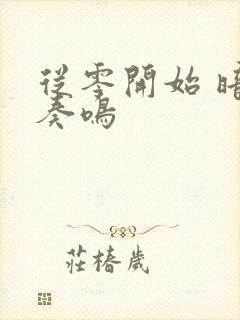 從零開始
奏鳴
莊椿歲